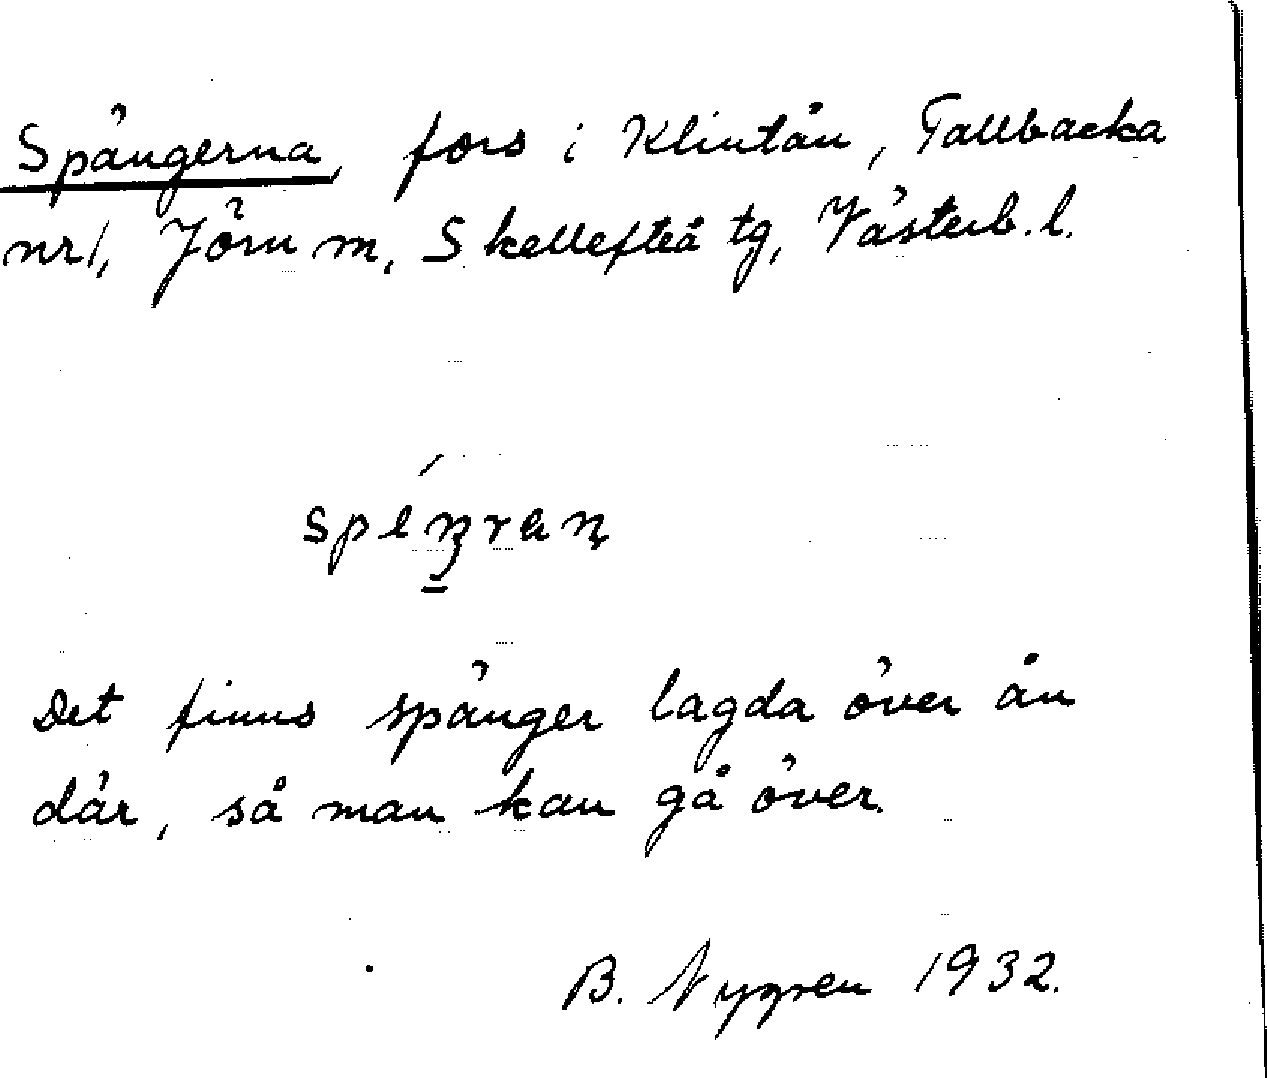 Spängerna, fors i Klintån, Tallbacka
nr 1, Jörn m, Skellefteå tg, Västerb. l.
Det finns spänger lagda över ån
där, så man kan gå över.
B. Nygren 1932.